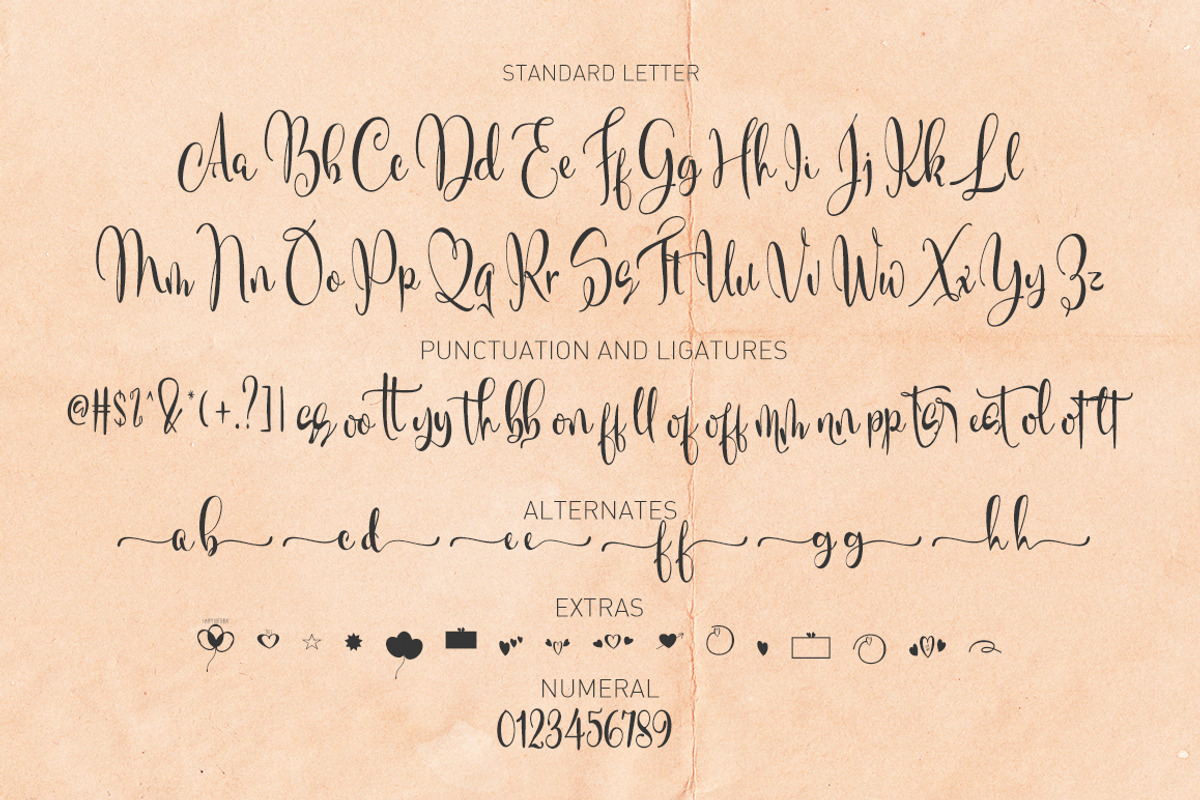 STANDARD LETTER
Aa Bb Cc Dd Ee Ff Gg Hh Ii Jj Kk Ll
Mm Nn Oo Pp Qq Rr Ss Tt Uu Vv Ww Xx Yy Zz
PUNCTUATION AND LIGATURES
@#$%^&*(+,?]| ss oo tt yy th bb on ff ll of off mm nn pp ts r est ol ot lt
ALTERNATES
ab cd ee ff gg hh
EXTRAS
NUMERAL
0123456789